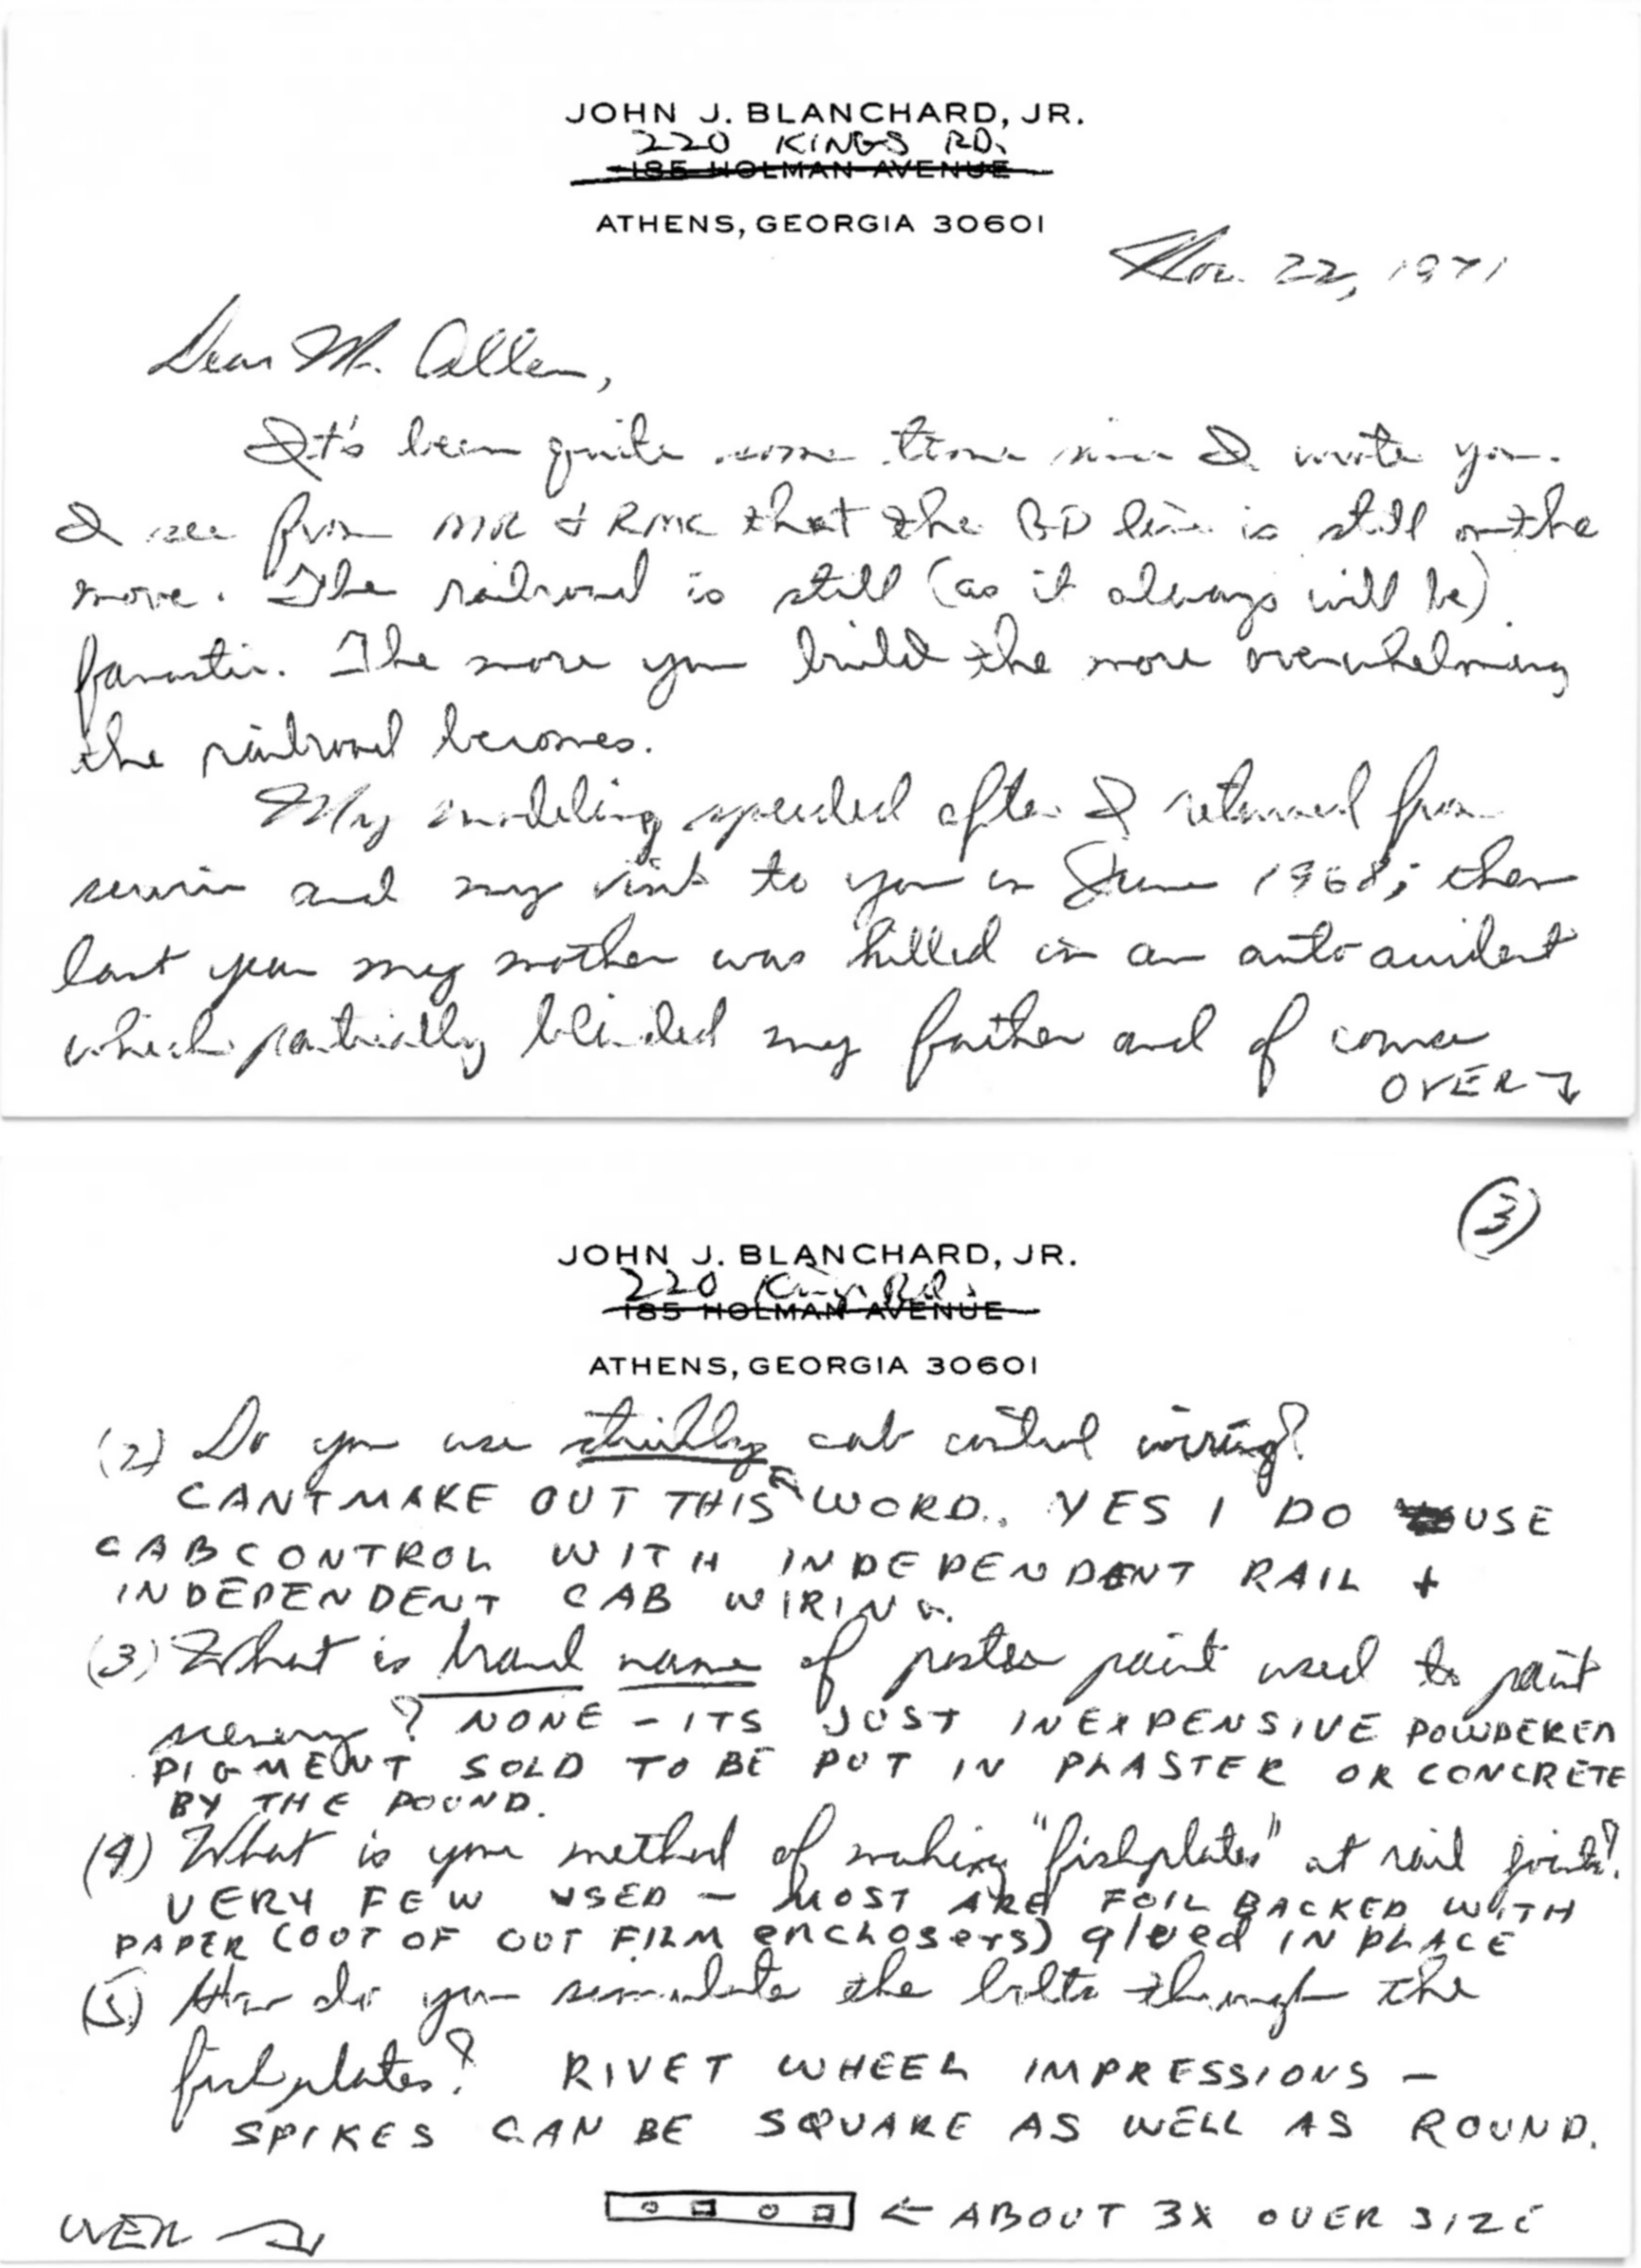 JOHN J. BLANCHARD, JR.
220 KINGS RD.
185 HOLMAN AVENUE
ATHENS, GEORGIA 30601
Nov. 22, 1971
Dear Mr. Allen,
It's been quite some time since I wrote you.
I see from MR & RMC that the GD line is still on the
move. The railroad is still (as it always will be)
fanastic. The more you build the more overwhelming
the railroad becomes.
My modeling speeded after I returned from
service and my visit to you in June 1968; then
last year my mother was killed in an auto accident
which partially blinded my father and of course
OVER
3
JOHN J. BLANCHARD, JR.
220 Kings Rd.
185 HOLMAN AVENUE
ATHENS, GEORGIA 30601
(2) Do you use strictly cab control wiring?
CANT MAKE OUT THIS WORD.. YES I DO USE
CABCONTROL WITH INDEPENDENT RAIL +
INDEPENDENT CAB WIRING.
(3) What is brand name of poster paint used to paint
scenery? NONE - ITS JUST INEXPENSIVE POWDERED
PIGMENT SOLD TO BE PUT IN PLASTER OR CONCRETE
BY THE POUND.
(4) What is your method of making "fishplates" at rail joints?
VERY FEW USED - MOST ARE FOIL BACKED WITH
PAPER (OUT OF OUT FILM enclosers) glued IN PLACE
(5) How do you simulate the bolts through the
fishplates? RIVET WHEEL IMPRESSIONS -
SPIKES CAN BE SQUARE AS WELL AS ROUND.
← ABOUT 3X OVER SIZE
OVER